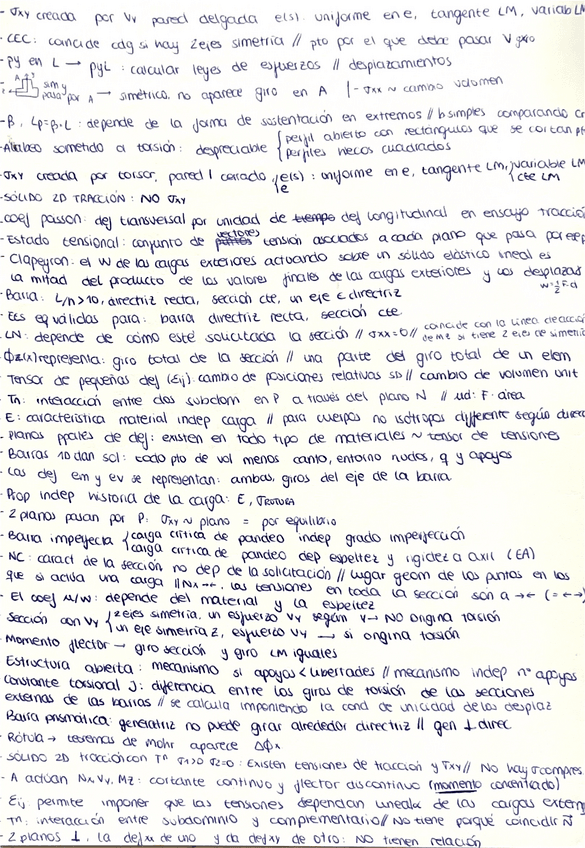 - σxy creada por Vy pared delgada e(s): uniforme en e, tangente LM, variab LM
- CEC: coincide cdg si hay 2 ejes simetría // pto por el que debe pasar V
- py en L → pyL : calcular leyes de esfuerzos // desplazamientos
sim y pasa por A → simétrico, no aparece giro en A | - σxx ~ cambio volumen
- β, Lp=β·L : depende de la forma de sustentación en extremos // b simples comparando
- Alabeo sometido a torsión: despreciable { perfil abierto con rectángulos que se cortan pto
perfiles huecos cuadrados
- σxy creada por torsor, pared / cerrado { e(s) : uniforme en e, tangente LM, variable LM
e cte LM
- SÓLIDO 2D TRACCIÓN : NO σxy
- coef poisson: def transversal por unidad de def longitudinal en ensayo tracción
- Estado tensional: conjunto de vectores tensión asociados a cada plano que pasa por ese p
- Clapeyron: el W de las cargas exteriores actuando sobre un sólido elástico lineal es
la mitad del producto de los valores finales de las cargas exteriores y los desplaza
W=½F·d
- Barra: L/h>10, directriz recta, sección cte, un eje ∈ directriz
- Ecs eq válidas para: barra directriz recta, sección cte.
- LN: depende de cómo esté solicitada la sección // σxx=0 // coincide con la línea de acción
de mt si tiene 2 ejes de simetría
- ϕz(x) representa: giro total de la sección // una parte del giro total de un elem
- Tensor de pequeñas def (εij): cambio de posiciones relativas SD // cambio de volumen unit
- Tn: interacción entre dos subdom en P a través del plano N // ud: F·área
- E: característica material indep carga // para cuerpos no isótropos differente según direcc
- planos ppales de def: existen en todo tipo de materiales ~ tensor de tensiones
- Barras 1D dan sol: todo pto de vol menos canto, entorno nudos, q y apoyos
- Las def em y ev se representan: ambas, giros del eje de la barra
- Prop indep historia de la carga: E, σrotura
- 2 planos pasan por P: σxy ~ plano = por equilibrio
- Barra imperfecta { carga crítica de pandeo indep grado imperfección
carga crítica de pandeo dep espeltez y rigidez a axil (EA)
- NC: caract de la sección no dep de la solicitación // lugar geom de los puntos en los
que si actúa una carga // Nx →←, las tensiones en toda la sección son a →← (= ←→)
- El coef μ/w: depende del material y la espeltez
- Sección con Vy { 2 ejes simetría, un esfuerzo Vy según y → NO origina torsión
un eje simetría z, esfuerzo Vy → si origina torsión
- Momento flector → giro sección y giro LM iguales
Estructura abierta : mecanismo si apoyos < libertades // mecanismo indep nº apoyos
constante torsional J: diferencia entre los giros de torsión de las secciones
extremas de las barras // se calcula imponiendo la cond de unicidad de los desplaz
Barra prismática: generatriz no puede girar alrededor directriz // gen ⊥ direc
- Rótula → teoremas de mohr aparece Δϕ
- SÓLIDO 2D tracción con σ1>0 σ2=0 : Existen tensiones de tracción y σxy // No hay σcompres.
- A actúan Nx Vy, Mz: cortante continuo y flector discontinuo (momento concentrado)
- Eij permite imponer que las tensiones dependan linealm de las cargas extern
- Tn: interacción entre subdominio y complementario // No tiene porqué coincidir N
- 2 planos ⊥, la def xx de uno y la def xy de otro: NO tienen relación